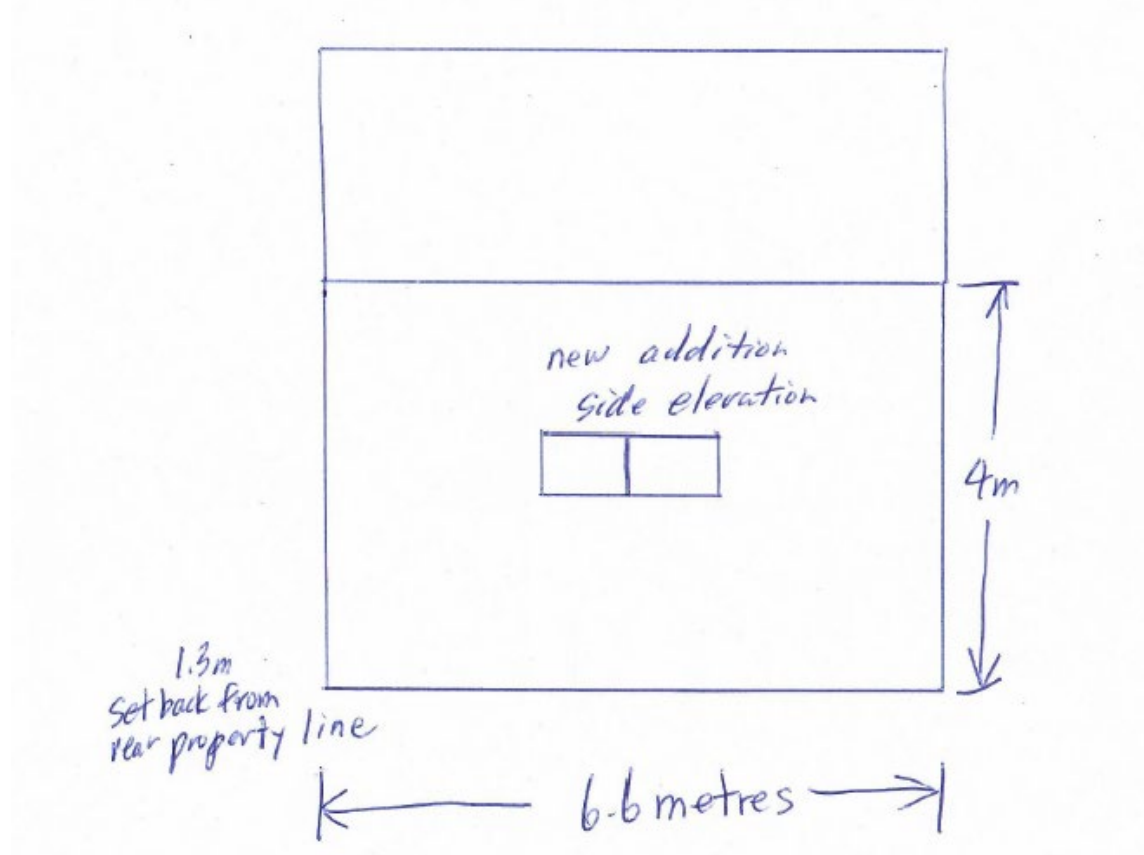 new addition
side elevation
4m
1.3m
setback from
rear property line
6.6 metres